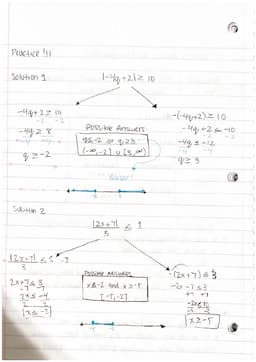 Practice !!!
Solution 1
|-4q+2| ≥ 10
-4q+2 ≥ 10
-2 -2
-4q ≥ 8
q ≥ -2
Possible Answers
q≤-2 or q≥3
(-∞,-2] ∪ [3,∞)
-(-4q+2) ≥ 10
-4q+2 ≤ -10
-2 -2
-4q ≤ -12
q ≥ 3
Solution 2
|2x+7|
3
≤ 1
|2x+7| ≤ 1 · 3
3
2x+7 ≤ 3
2x ≤ -4
x ≤ -2
Possible Answers
x≤-2 and x≥-5
[-5,-2]
-(2x+7) ≤ 3
-2x-7 ≤ 3
+7 +7
-2x ≤ 10
x ≥ -5